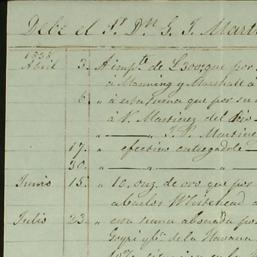 Debe el Sr. Dn. G. F. Mart
Abril 3. A impte. de L300 que por
a Manning y Marshall á
6. " á esta suma que por su
á V. Martinez del Rio
" " Martine
17. " efectivo entregadole
30. "
Junio 15. " 10. onz. de oro que por
abuelos Whitehead
Julio 23. " esta suma abonada por
Goyri y pr. de la Havana